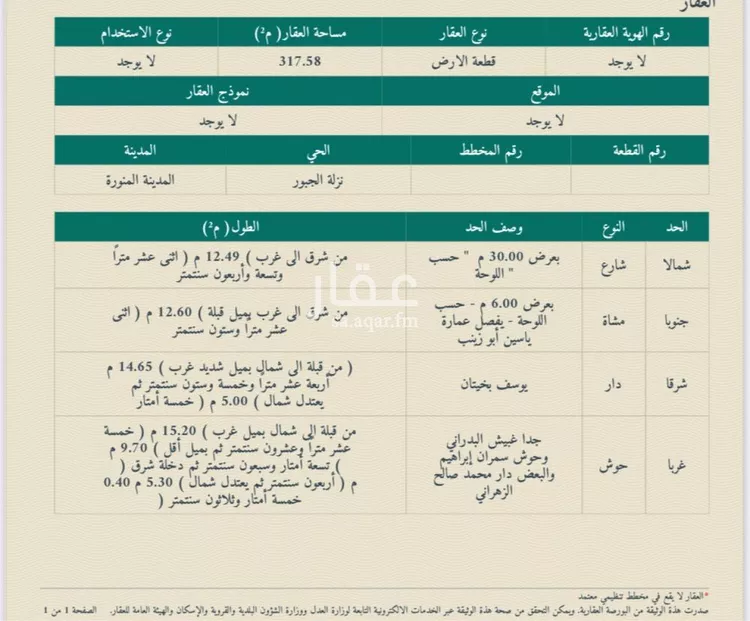 العقار
رقم الهوية العقارية نوع العقار مساحة العقار( م²) نوع الاستخدام
لا يوجد قطعة الارض 317.58 لا يوجد
الموقع نموذج العقار
لا يوجد لا يوجد
رقم القطعة رقم المخطط الحي المدينة
نزلة الجبور المدينة المنورة
الحد النوع وصف الحد الطول( م²)
شمالا شارع بعرض 30.00 م " حسب من شرق الى غرب ) 12.49 م ( اثنى عشر متراً
اللوحة " وتسعة وأربعون سنتمتر
جنوبا مشاة بعرض 6.00 م - حسب من شرق الى غرب يميل قبلة ) 12.60 م ( اثنى
اللوحة - يفصل عمارة عشر متراً وستون سنتمتر
ياسين أبو زينب
شرقا دار يوسف بخيتان ( من قبلة الى شمال بميل شديد غرب ) 14.65 م
أربعة عشر متراً وخمسة وستون سنتمتر ثم
يعتدل شمال ) 5.00 م ( خمسة أمتار
غربا حوش جدا غبيش البدراني من قبلة الى شمال بميل غرب ) 15.20 م ( خمسة
وحوش سمران إبراهيم عشر متراً وعشرون سنتمتر ثم بميل أقل ) 9.70 م
والبعض دار محمد صالح ( تسعة أمتار وسبعون سنتمتر ثم دخلة شرق (
الزهراني م ( أربعون سنتمتر ثم يعتدل شمال ) 5.30 م 0.40
خمسة أمتار وثلاثون سنتمتر (
عقار
sa.aqar.fm
*العقار لا يقع في مخطط تنظيمي معتمد
صدرت هذة الوثيقة من البورصة العقارية. ويمكن التحقق من صحة هذة الوثيقة عبر الخدمات الالكترونية التابعة لوزارة العدل ووزارة الشؤون البلدية والقروية والإسكان والهيئة العامة للعقار. الصفحة 1 من 1